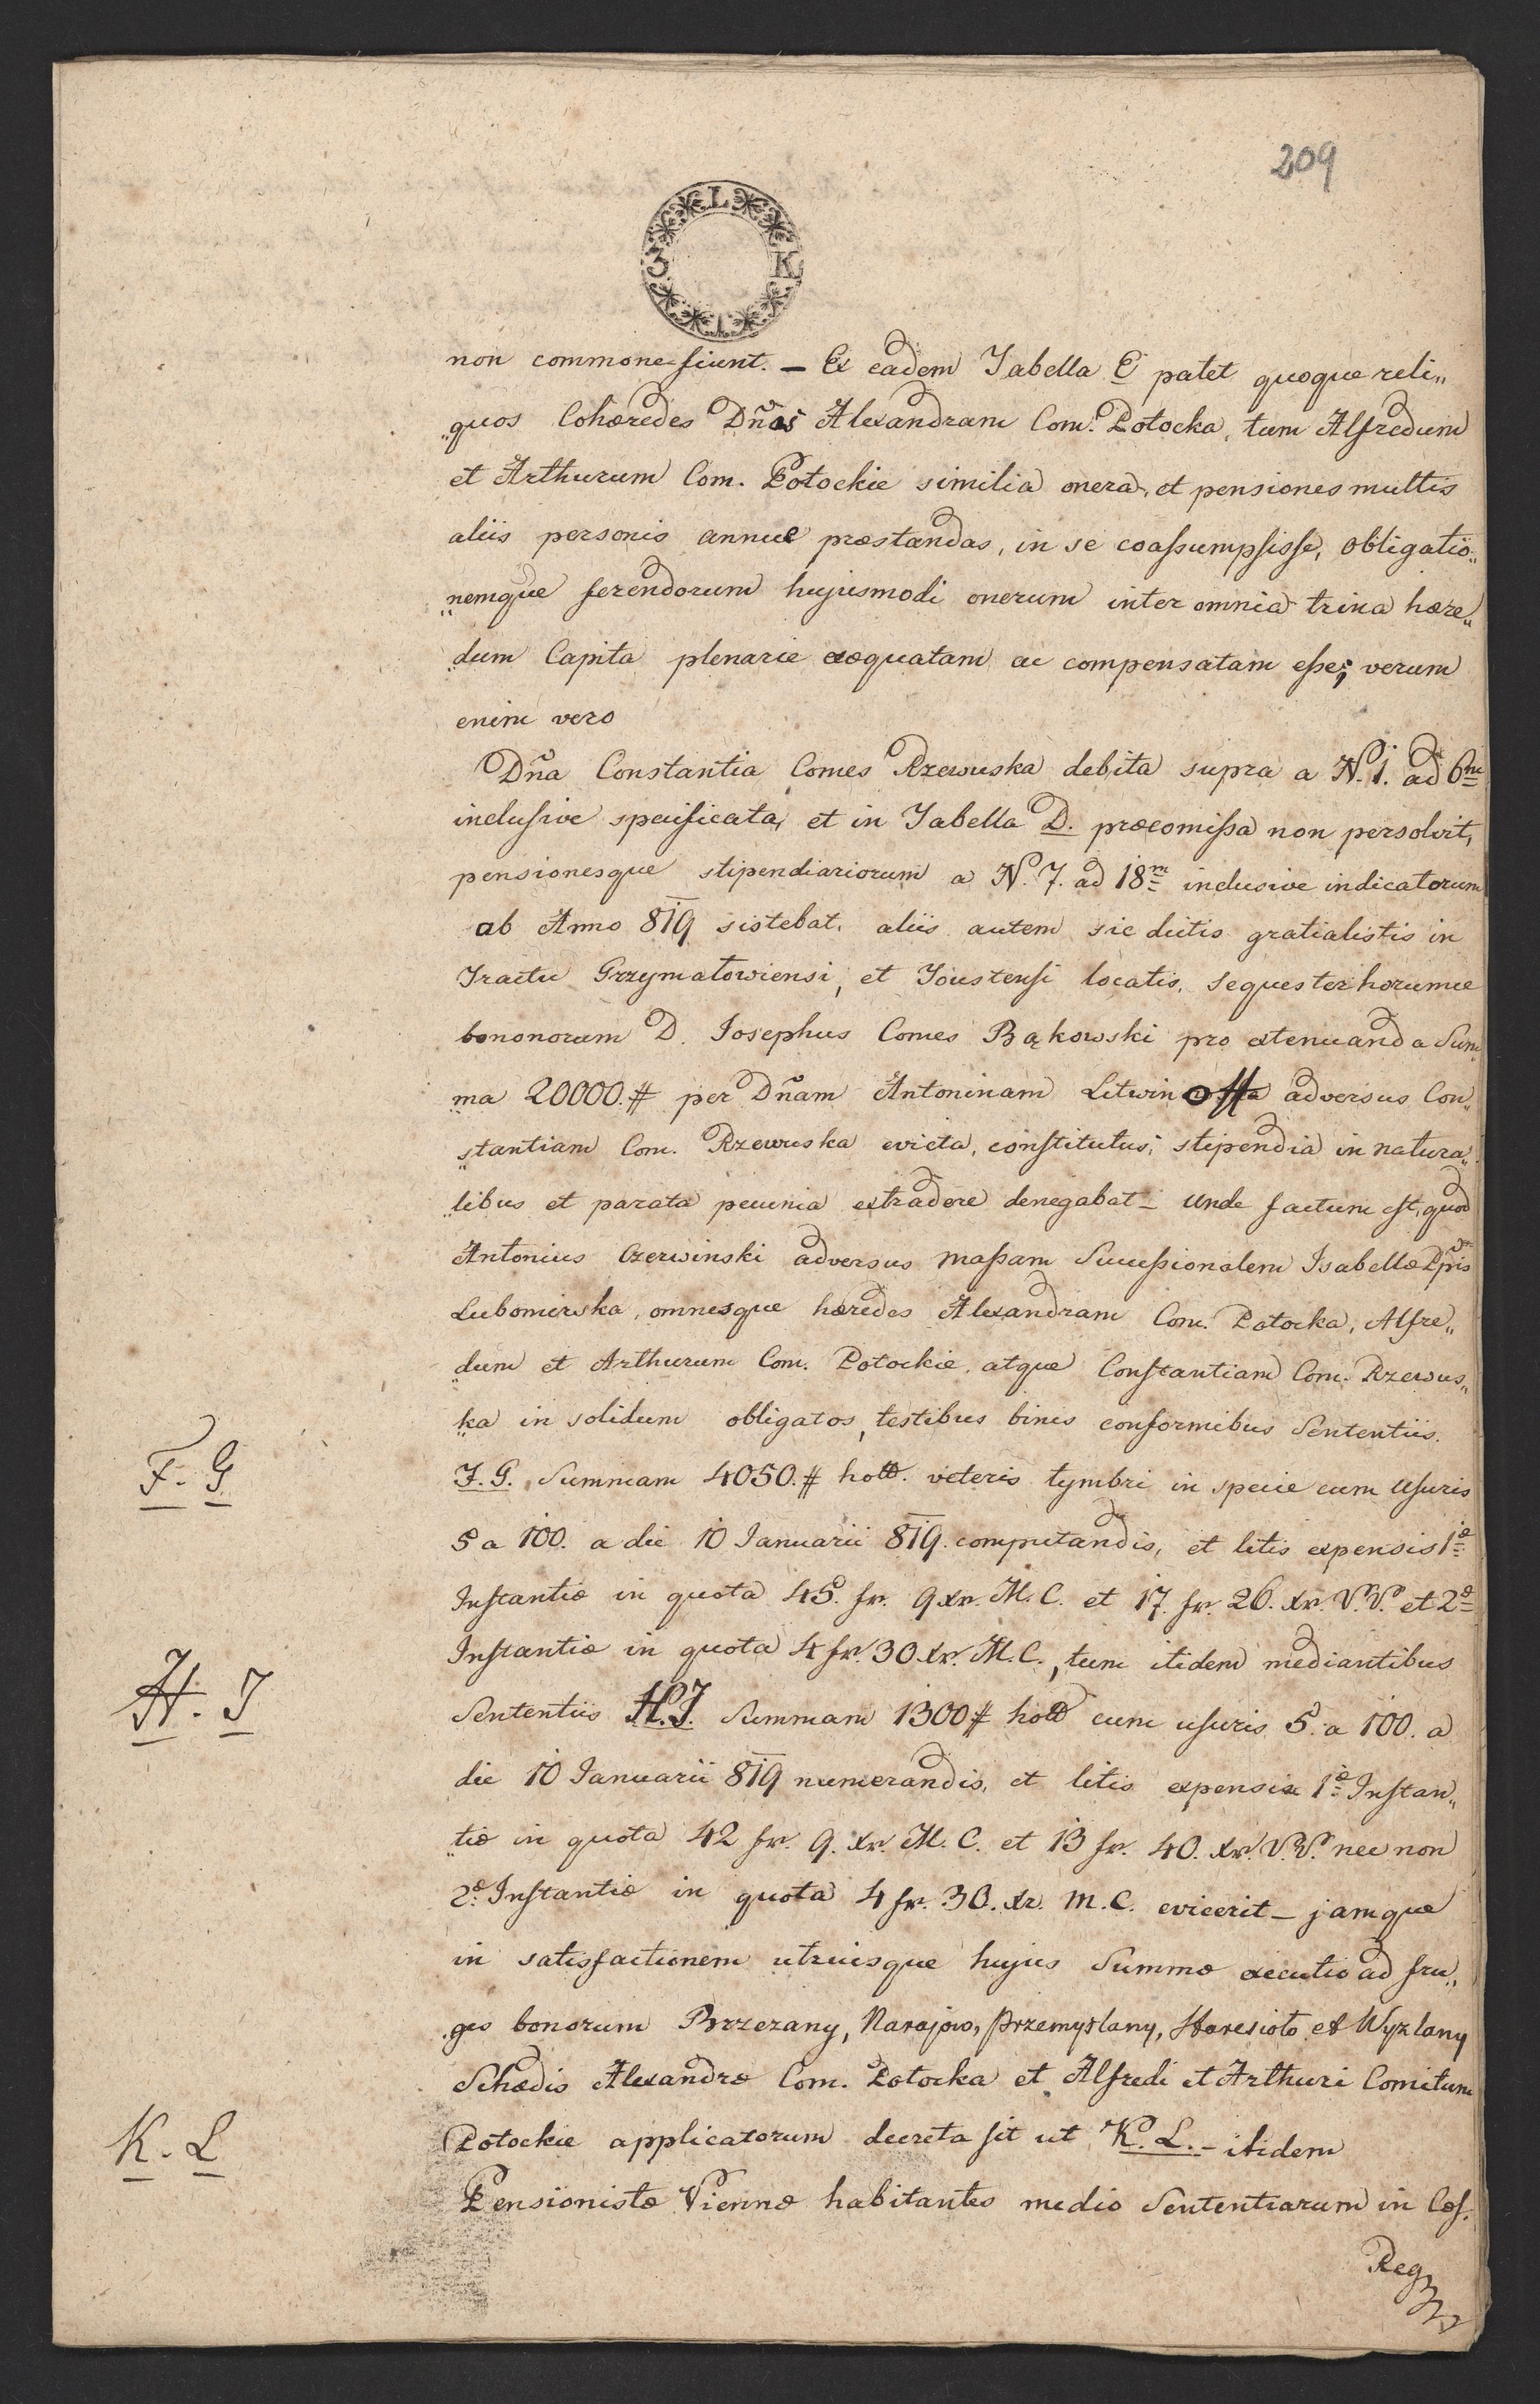 209
L
3 K
I
non commonefiunt. – Ex eadem Tabella E patet quoque reli„
„quos Cohæredes Dños Alexandram Com. Potocka, tum Alfredum
et Arthurum Com. Potockie similia onera, et pensiones multis
aliis personis annue præstandas, in se coaſsumpsiſse, obligatio„
„nemque ferendorum hujusmodi onerum inter omnia trina hære„
„dum Capita plenarie exæquatam ac compensatam eſse; verum
enim vero
Dña Constantia Comes Rzewuska debita supra a N. 1. ad 6m
incluſive specificata, et in Tabella D. præcomiſsa non persolvit,
pensionesque stipendiariorum a N. 7. ad 18m inclusive indicatorum
ab Anno 819 sistebat, aliis autem sic dictis gratialistis in
Tractu Grzymatowiensi, et Toustenſi locatis, sequester horumce
bononorum D. Josephus Comes Bąkowski pro extenuanda Sum„
„ma 20000.# per Dñam Antoninam Litwinoffa adversus Con„
„stantiam Com. Rzewuska evicta, conſtitutus, stipendia in natura„
„libus et parata pecunia extradere denegabat – unde factum eſt, quod
Antonius Czerwinski adversus maſsam Succeſsionalem Isabellæ Ppis
Lubomirska, omnesque hæredes Alexandram Com. Potocka, Alfre„
„dum et Arthurum Com. Potockie, atque Conſtantiam Com. Rzewus„
„ka in solidum obligatos, testibus binis conformibus Sententiis.
F. G
F. G. Summam 4050.# holl. veteris tymbri in specie cum uſuris
5 a 100. a die 10 Januarii 819. computandis, et litis expensis 1æ
Inſtantiæ in quota 45. fr. 9 xr. M. C. et 17. fr. 26. xr. V.V. et 2æ
Inſtantiæ in quota 4 fr. 30 xr. M. C., tum itidem mediantibus
H. J
Sententiis H.J. Summam 1300 # holl cum uſuris 5. a 100. a
die 10 Januarii 819 numerandis, et litis expensis 1æ Inſtan„
„tiæ in quota 42 fr. 9. xr. M. C. et 13 fr. 40. xr. V.V. nec non
2æ Inſtantiæ in quota 4 fr. 30. xr. M. C. evicerit – jamque
in satisfactionem utriusque hujus Summæ executio ad fru„
„ges bonorum Brzezany, Narajow, Przemyslany, Staresioło et Wyzlany
Schædis Alexandræ Com. Potocka et Alfredi et Arthuri Comitum
K. L
Potockie applicatorum decreta ſit ut K. L. – itidem
Pensionistæ Viennæ habitantes medio Sententiarum in Cæſ.
Reg